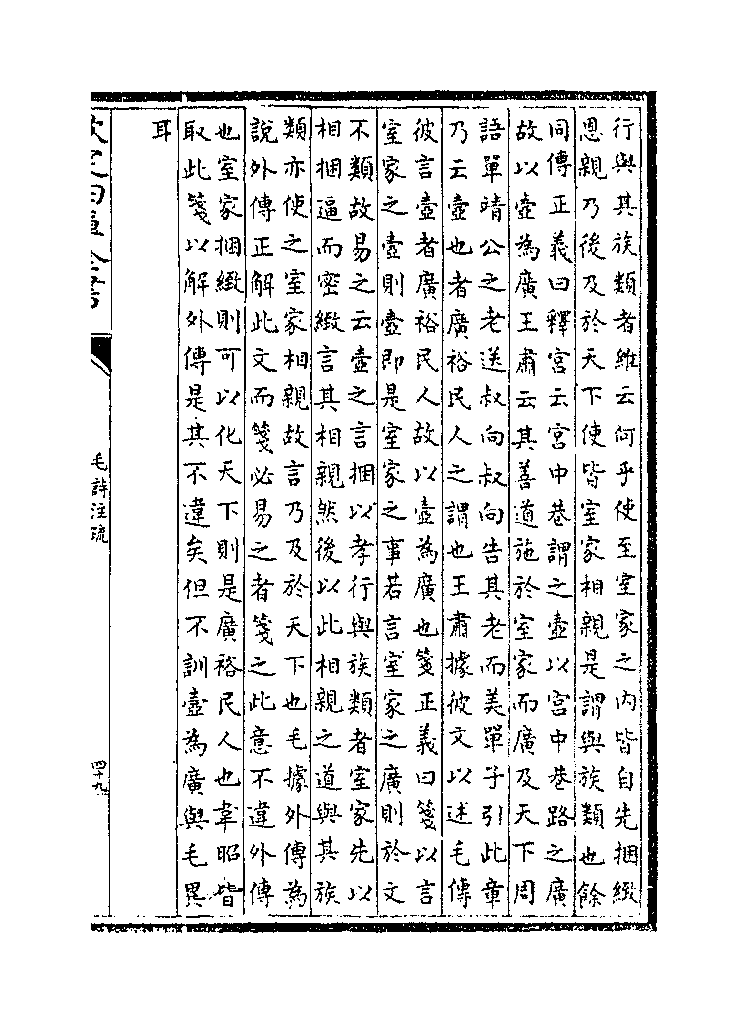 行與其族類者維云何乎使至室家之内皆自先捆緻
恩親乃後及於天下使皆室家相親是謂與族類也餘
同傳正義曰釋宫云宫中巷謂之壼以宫中巷路之廣
故以壼為廣王肅云其善道施於室家而廣及天下周
語單靖公之老送叔向叔向告其老而美單子引此章
乃云壼也者廣裕民人之謂也王肅據彼文以述毛傳
彼言壼者廣裕民人故以壼為廣也箋正義曰箋以言
室家之壼則壼即是室家之事若言室家之廣則於文
不類故易之云壼之言捆以孝行與族類者室家先以
相捆逼而密緻言其相親然後以此相親之道與其族
類亦使之室家相親故言乃及於天下也毛據外傳為
說外傳正解此文而箋必易之者箋之此意不違外傳
也室家捆緻則可以化天下則是廣裕民人也韋昭皆
取此箋以解外傳是其不違矣但不訓壼為廣與毛異
耳
欽定四庫全書
毛詩注疏
四十九